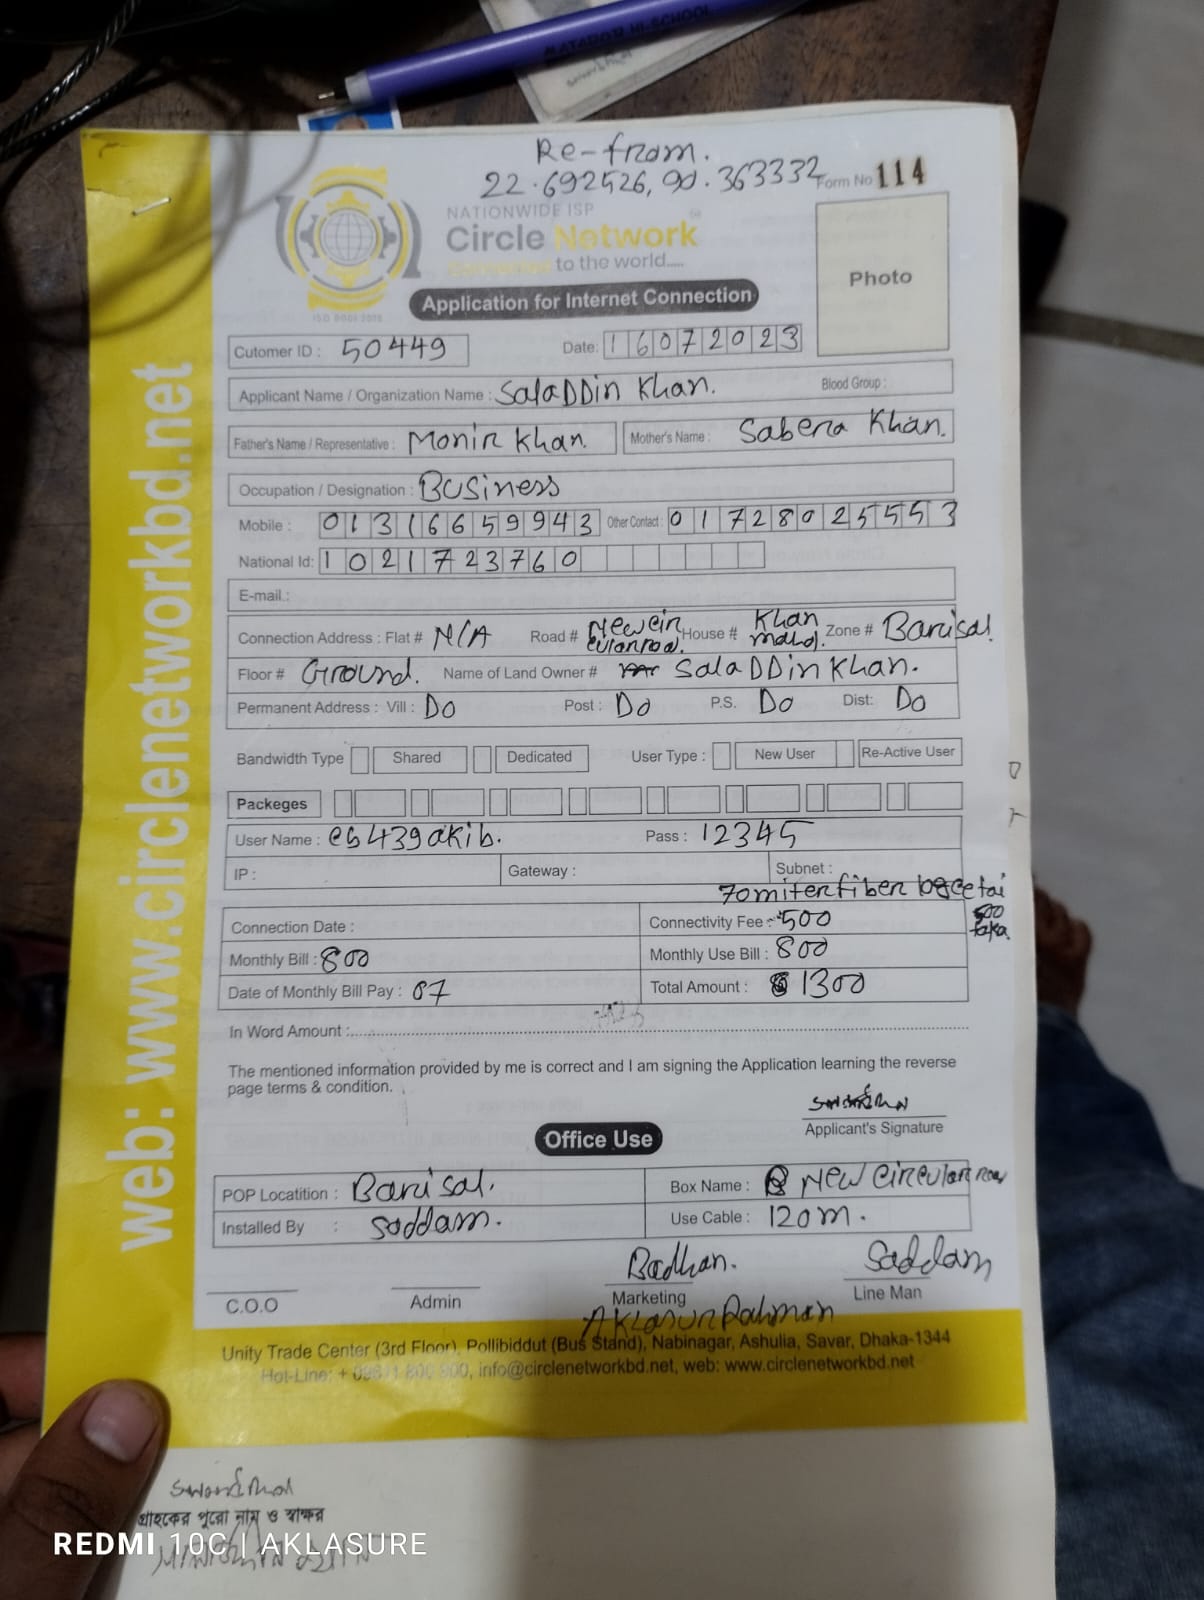 MATABDIR HI-SCHOOL
Re-from.
22.692526, 90.363332
Form No 114
NATIONWIDE ISP
Circle Network
to the world.....
ISO 9001:2015
Photo
Application for Internet Connection
Cutomer ID : 50449 Date: 16072023
Applicant Name / Organization Name : SalaDDin Khan. Blood Group :
Father's Name / Representative : Monir Khan. Mother's Name : Sabera Khan.
Occupation / Designation : Business
Mobile : 01316659943 Other Contact : 01728025553
National Id: 1021723760
E-mail.:
Connection Address : Flat # N/A Road # Newcir culanroad. House # Khan mahal. Zone # Barisal
Floor # Ground. Name of Land Owner # SalaDDin Khan.
Permanent Address : Vill : Do Post : Do P.S. Do Dist: Do
Bandwidth Type Shared Dedicated User Type : New User Re-Active User
Packeges
User Name : cs439akib. Pass : 12345
IP : Gateway : Subnet :
70miter fiber
500 taka
Connection Date : Connectivity Fee : 500
Monthly Bill : 800 Monthly Use Bill : 800
Date of Monthly Bill Pay : 07 Total Amount : 1300
In Word Amount :
The mentioned information provided by me is correct and I am signing the Application learning the reverse
page terms & condition.
Applicant's Signature
Office Use
POP Locatition : Barisal. Box Name : New Circular road
Installed By : Soddam. Use Cable : 120m.
Badhan. Saddam
C.O.O Admin Marketing Line Man
Aklasur Rahman
Unity Trade Center (3rd Floor), Pollibiddut (Bus Stand), Nabinagar, Ashulia, Savar, Dhaka-1344
Hot-Line: + info@circlenetworkbd.net, web: www.circlenetworkbd.net
web: www.circlenetworkbd.net
গ্রাহকের পুরো নাম ও স্বাক্ষর
REDMI 10C | AKLASURE